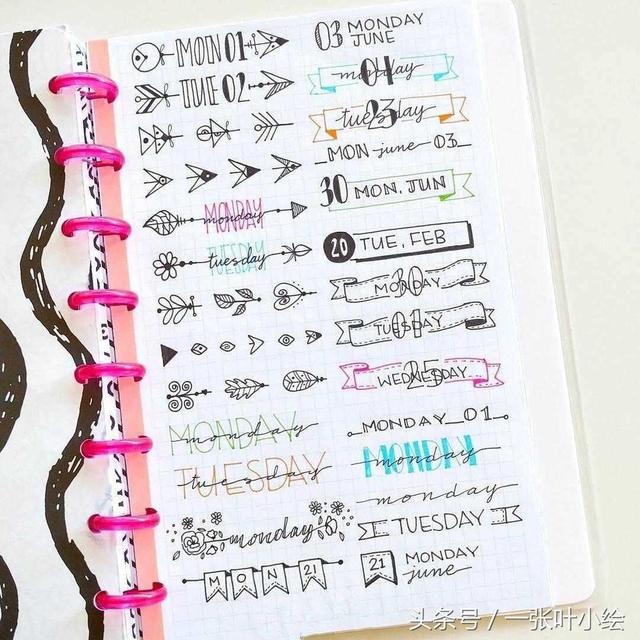 MON 01
TUE 02
MONDAY monday
TUESDAY tuesday
MONDAY monday
TUESDAY tuesday
monday
MON 21
03 MONDAY
JUNE
monday
tuesday 23
MON june 03
30 MON, JUN
20 TUE, FEB
MONDAY 30
TUESDAY 01
WEDNESDAY 25
MONDAY_01
MONDAY monday
monday
TUESDAY
21 MONDAY
june
头条号 / 一张叶小绘